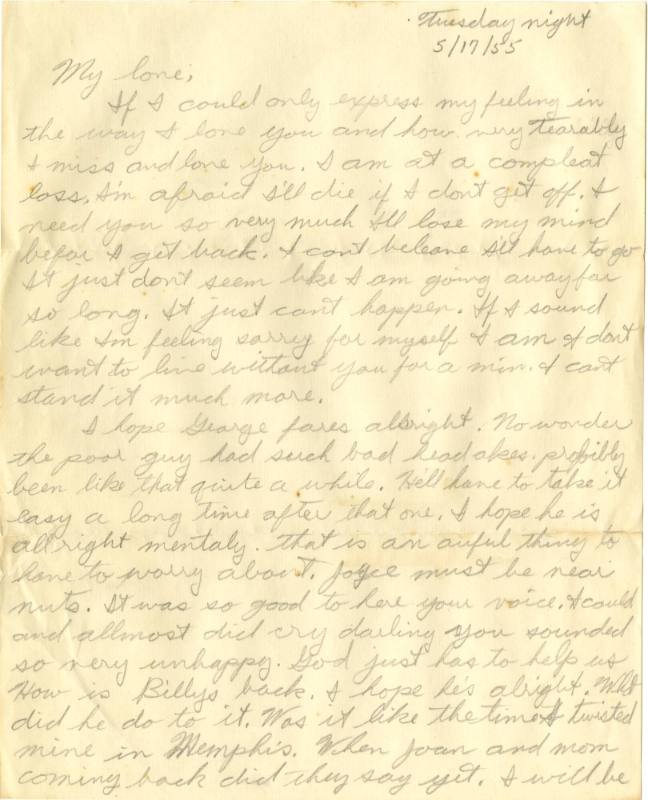 Tuesday night
5/17/55
My love,
If I could only express my feeling in
the way I love you and how very tearably
I miss and love you. I am at a compleat
loss. I'm afraid I'll die if I dont get off. I
need you so very much I'll lose my mind
befor I get back. I cant beleave I'll have to go
It just dont seem like I am going away for
so long. It just cant happen. If I sound
like I'm feeling sorry for myself I am I dont
want to live without you for a min. I cant
stand it much more.
I hope George fares allright. No wonder
the poor guy had such bad head akes. probibly
been like that quite a while. He'll have to take it
easy a long time after that one. I hope he is
all right mentaly. That is an auful thing to
have to worry about. Joyce must be near
nuts. It was so good to here your voice. I could
and allmost did cry darling you sounded
so very unhappy. God just has to help us
How is Billys back. I hope he's alright. What
did he do to it. Was it like the time I twisted
mine in Memphis. When Joan and mom
coming back did they say yet. I will be